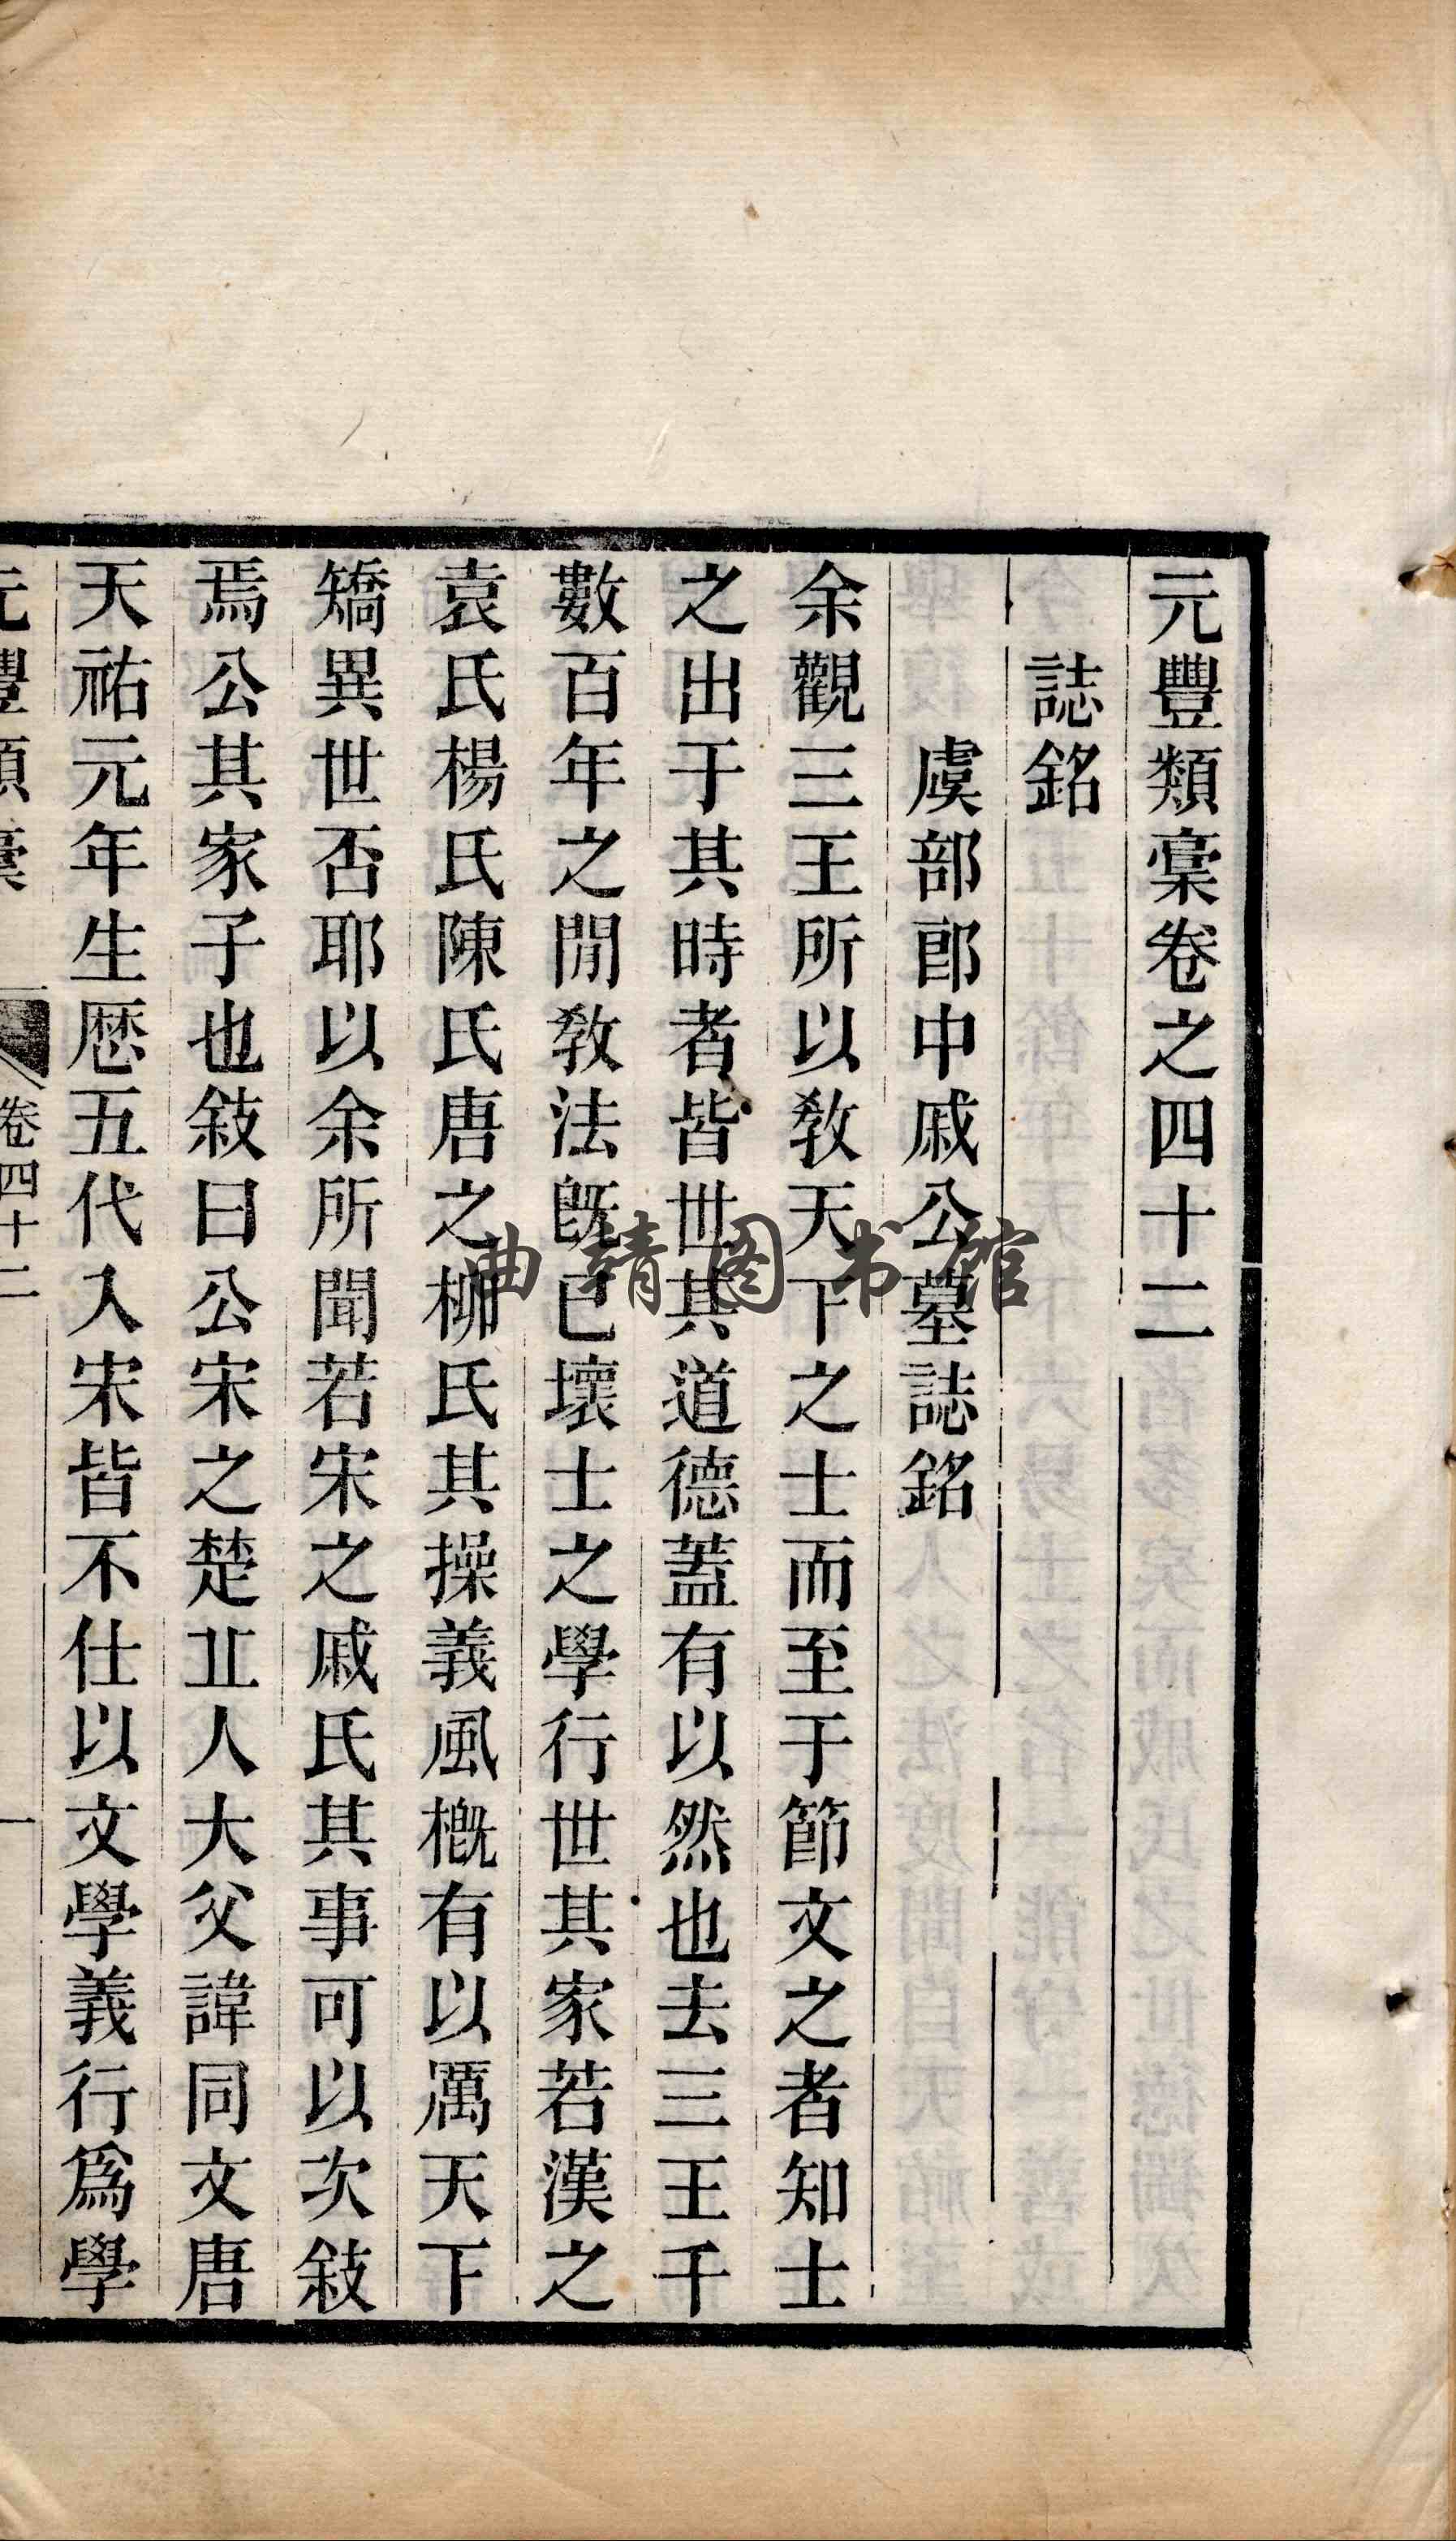 元豐類稾卷之四十二
誌銘
虞部郎中戚公墓誌銘
余觀三王所以敎天下之士而至于節文之者知士
之出于其時者皆世其道德蓋有以然也去三王千
數百年之閒敎法旣已壞士之學行世其家若漢之
袁氏楊氏陳氏唐之柳氏其操義風槪有以厲天下
矯異世否耶以余所聞若宋之戚氏其事可以次敍
焉公其家子也敍曰公宋之楚丠人大父諱同文唐
天祐元年生歷五代入宋皆不仕以文學義行爲學
元豐類稾
卷四十二
一
曲靖图书馆